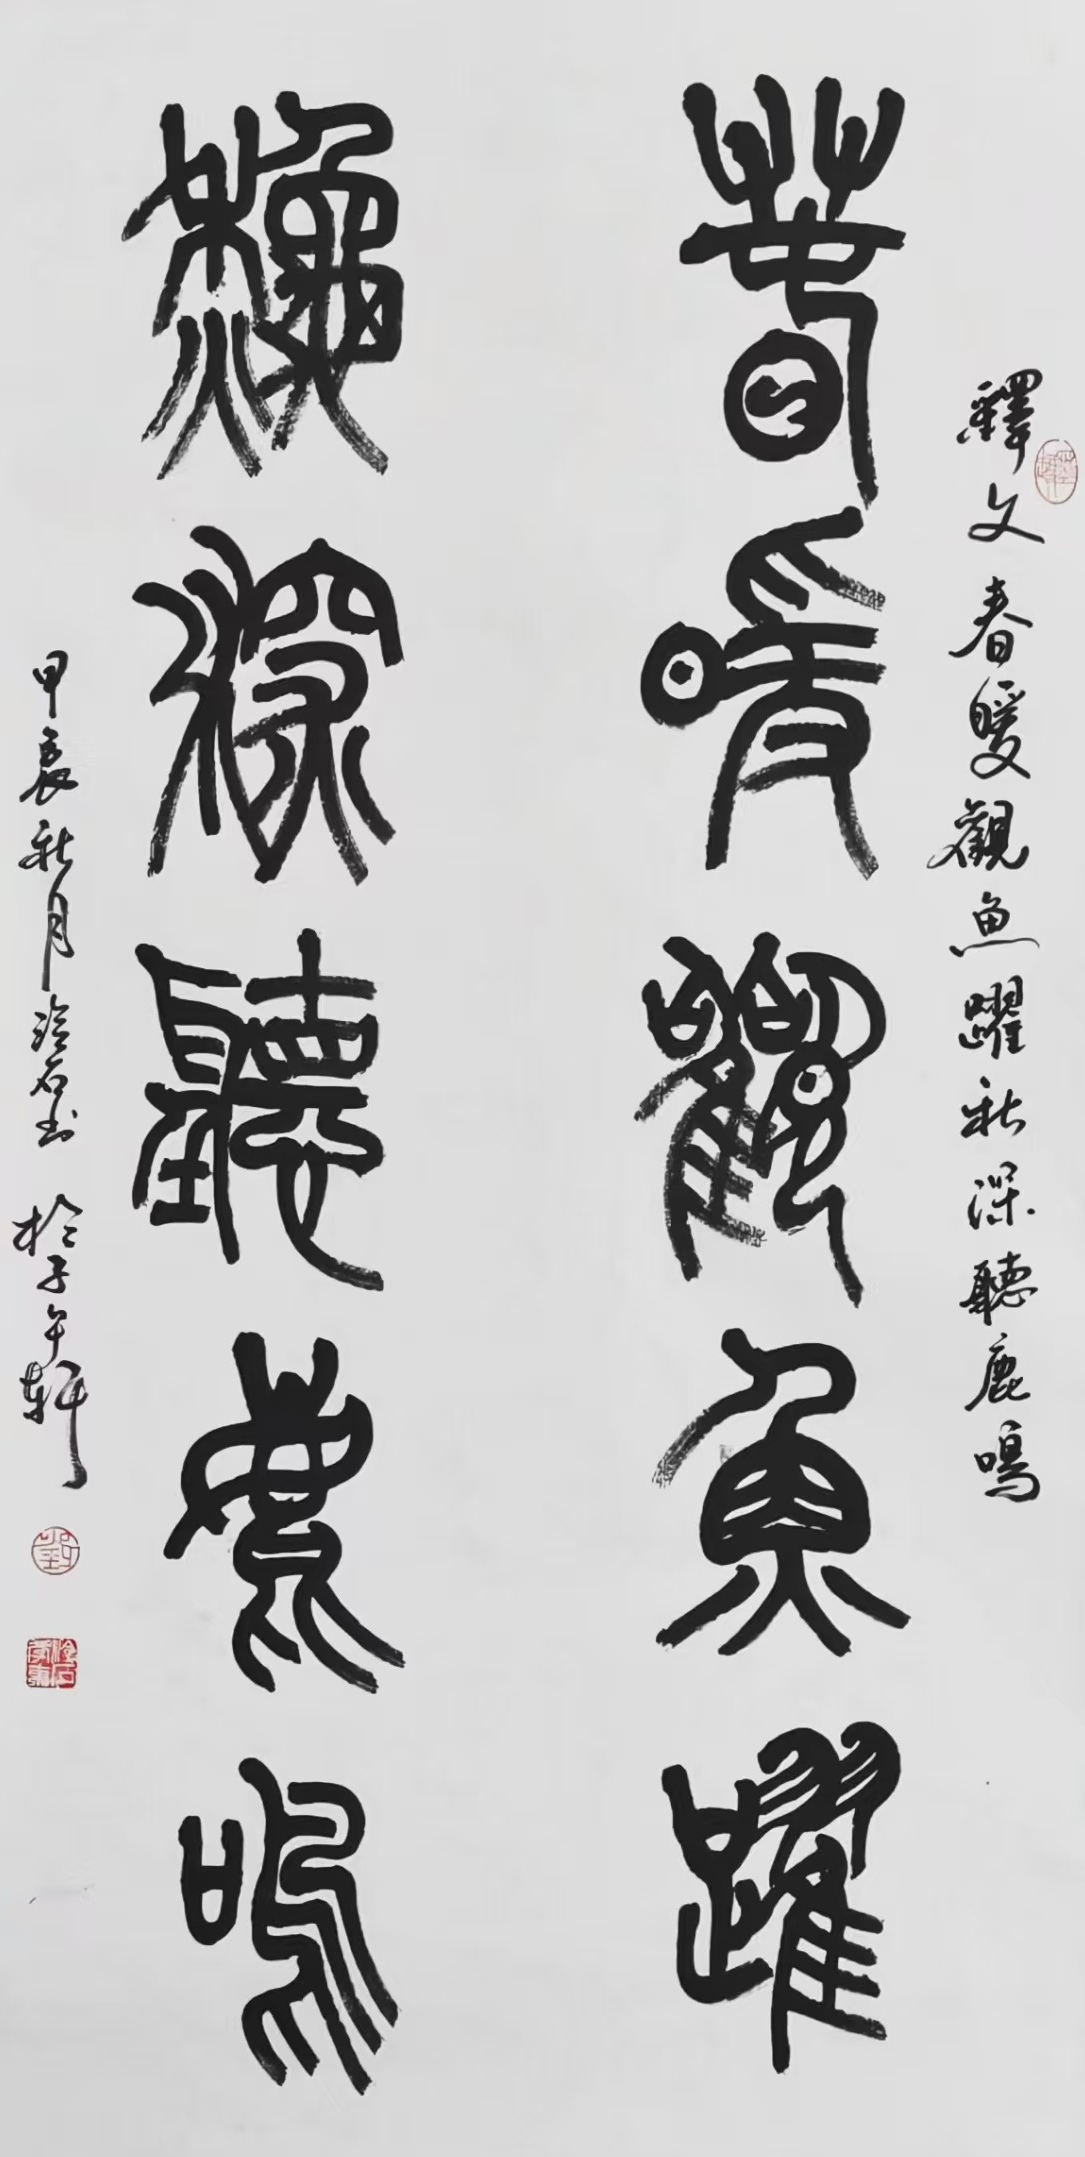 釋文春暖觀魚躍秋深聽鹿鳴
春暖觀魚躍
秋深聽鹿鳴
甲辰秋月泠石书於子午軒